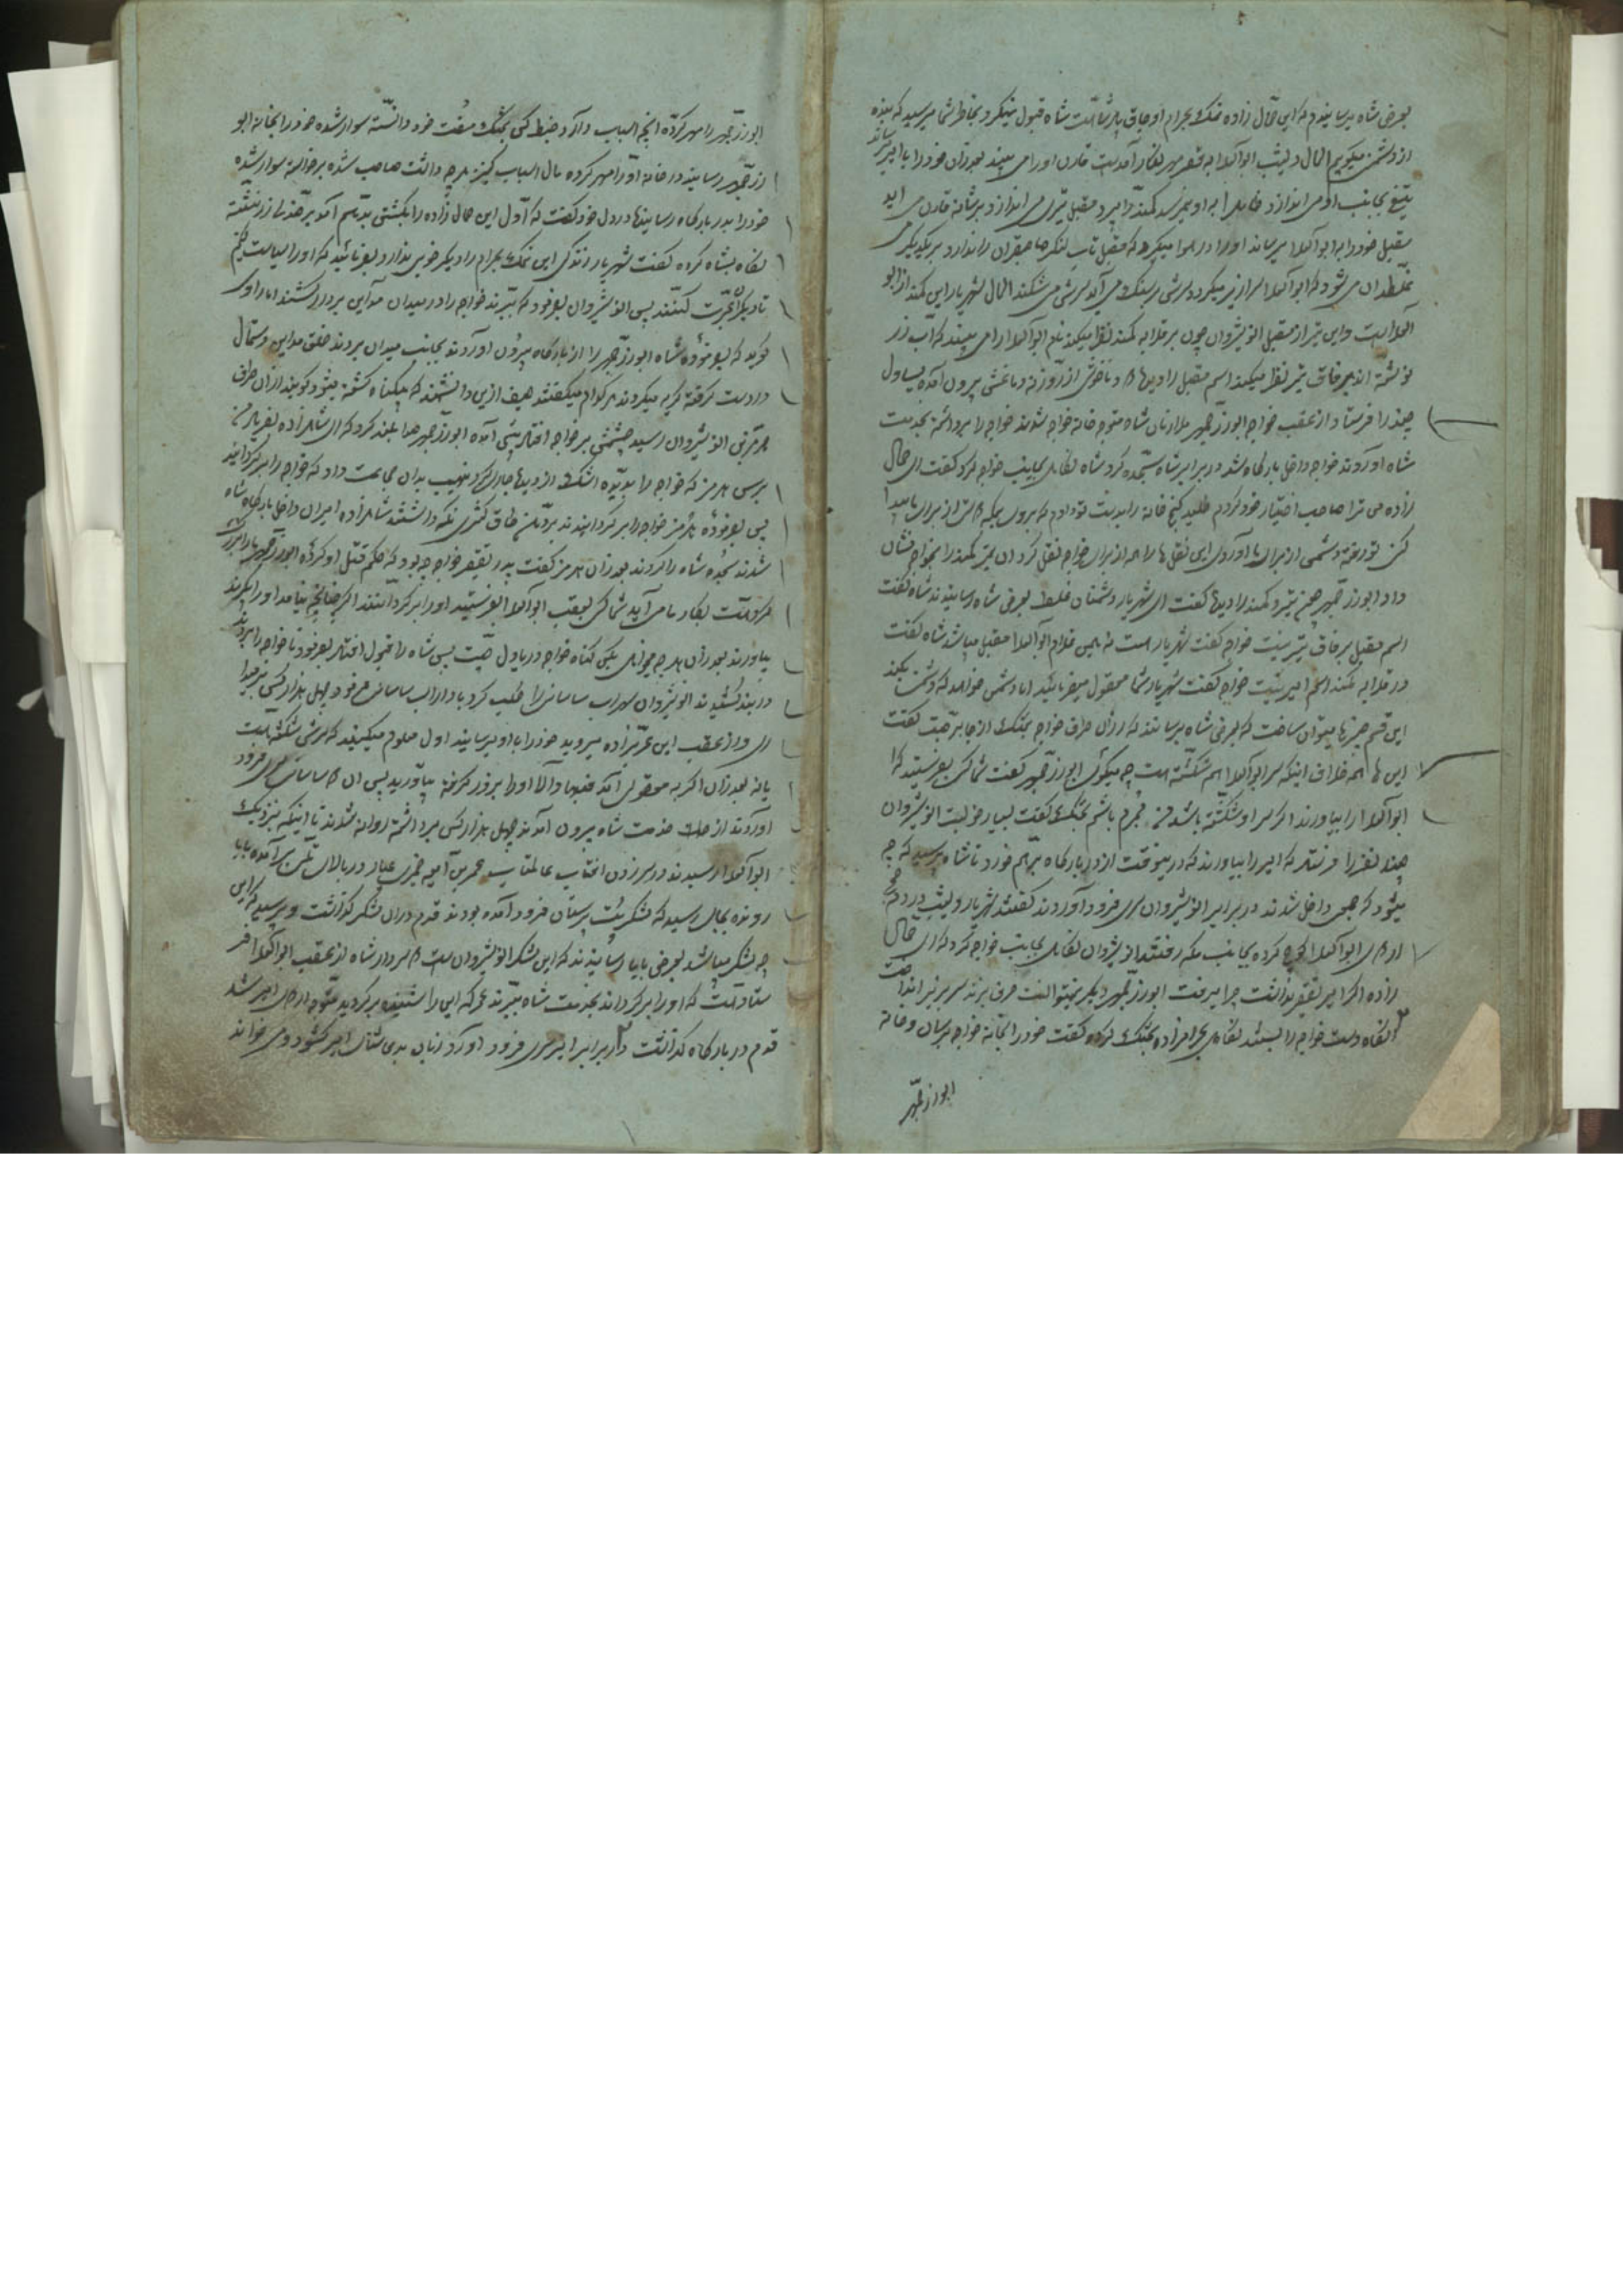 بعرض شاه برسانیدم که این حمال زاده نمک بحرام اوجاق پدر شماست شاه قبول نمیکرد بخاطر شما میرسید که بنده
از دشمنی میگویم الحال دیشب ابوالعلا به قصر مهرنگار آمدست قارن او را می بیند بعد از آن خود را با امیر رساند
تیغ بجانب او می اندازد به او نمیرسد کمند را میبرد مقبل تیری می اندازد بر شانه قارن می آید
مقبل خود را به ابوالعلا میرساند او را در هوا میگیرد که مقبل تاب لنگر صاحبقران را ندارد بر یکدیگر می
غلطند می شود که ابوالعلا سرازیر میگردد سرش بر سنگ می آید سرش می شکند الحال شهریار این کمند از ابو
العلا است و این تیر از مقبل انوشیروان چون بر قلابه کمند نظر میکند نام ابوالعلا را می بیند که آب زر
نوشته اند بر فاق تیر نظر میکند اسم مقبل را دید دنافوش از روزنه دماغش بیرون آمده یساول
چند را فرستاد از عقب خواجه ابوزرجمهر ملازمان شاه متوجه خانه خواجه شدند خواجه را برداشته بخدمت
شاه آوردند خواجه داخل بارگاه شد در برابر شاه سجده کرد شاه نگاه بجانب خواجه کرد گفت ای حمال
زاده من ترا صاحب اختیار خود کردم کلید گنج خانه را بدست تو دادم که بروی از برای ما پیدا
کن تو رفته دشمنی از برای ما آوردی این نقل ها را همه از برای خواجه نقل کرد آن تیر کمند را بخواجه نشان
داد ابوزرجمهر چشم تیر و کمند را دید گفت ای شهریار دشمنان غلط بعرض شاه رسانیدند شاه گفت
اسم مقبل بر فاق تیر نیست خواجه گفت شهریار هست نه همین غلام ابوالعلا مقبل میباشد شاه گفت
در قلابه کمند اسم امیر نیست خواجه گفت شهریار شما معقول میفرمائید اما دشمن خواهد که دشمنی بکند
این قسم چیزها میتوان ساخت که بعرض شاه برسانند که از آن طرف خواجه بختک از جا برجست گفت
این ها همه خلاف اینکه سر ابوالعلا هم شکسته است چه میگوئی ابوزرجمهر گفت شما کس بفرستید که
ابوالعلا را بیاورند اگر سر او شکسته باشد من مجرم باشم بختک گفت بسیار خوبست انوشیروان
چند نفر را فرستاد که امیر را بیاورند که در اینوقت از در بارگاه برهم خورد تا شاه پرسید که چه
میشود که جمعی داخل شدند در برابر انوشیروان سری فرود آوردند گفتند شهریار دیشب در دم صبح
اردوی ابوالعلا کوچ کرده بجانب مکه رفتند انوشیروان نگاه بجانب خواجه کرد که ای حمال
زاده اگر امیر تقصیر نداشت چرا میرفت ابوزرجمهر دیگر نمیتوانست حرف بزند سر بزیر انداخت
آنگاه دست خواجه را بستند نگاه بحرامزاده بختک کرده گفت خود را بخانه خواجه برسان و خانه
ابوزرجمهر
ابوزرجمهر را مهر کرده آنچه اسباب دارد ضبط کن بختک مفت خود دانسته سوار شده خود را بخانه ابو
زرجمهر رسانید در خانه او را مهر کرده مال اسباب کنیز هر چه داشت صاحب شده برخاسته سوار شده
خود را بدر بارگاه رسانید در دل خود گفت که اول این حمال زاده را بکشتن بدهم آمد بر صندلی زر نشسته
نگاه بشاه کرده گفت شهریار زندگی این نمک بحرام را دیگر خوبی ندارد بفرمائید که او را سیاست کنم
تا دیگران عبرت کنند پس انوشیروان بفرمود که ببرند خواجه را در میدان مداین بر دار کشند اما راوی
گوید که بفرموده شاه ابوزرجمهر را از بارگاه بیرون آوردند بجانب میدان بردند خلق مداین دستمال
در دست گرفته گریه میکردند هر کدام میگفتند حیف ازین دانشمند که بیگناه کشته میشود گویند از آن طرف
هرمز بن انوشیروان رسید چشمش بر خواجه افتاد پیش آمده ابوزرجمهر صدا بلند کرد که ای شاهزاده بفریاد من
برس هرمز که خواجه را بدید اشک از دیده جاری کرد نهیب بدان جماعت داد که خواجه را برگردانید
پس بفرموده هرمز خواجه را برگردانیدند بر در طاق کسری نگه داشتند شاهزاده ایران داخل بارگاه شاه
شدند سجده شاه را کردند بعد از آن هرمز گفت پدر تقصیر خواجه چه بود که حکم قتل او کرده ابوزرجمهر
مرد است بکار ما می آید شما کس بعقب ابوالعلا بفرستید او را برگردانند اگر چنانچه نیامد او را بگیرند
بیاورند بعد از آن هر چه میخواهی بکن گناه خواجه در باول چیست پس شاه را قبول افتاد بفرمود تا خواجه را بردند
در بند کشیدند انوشیروان سهراب ساسانی را طلب کرد با داراب ساسانی فرمود چهل هزار کس بردار
و از عقب این عرب زاده میروید خود را باو میرسانید اول معلوم میکنید که سرش شکسته است
یا نه بعد از آن اگر به معقولی آمد فبها و الا او را بزور گرفته بیاورید پس آن ساسانی سری فرود
آوردند از خدمت شاه بیرون آمدند چهل هزار کس برداشته روانه شدند تا اینکه نزدیک
ابوالعلا رسیدند در سر زدن آفتاب عالمتاب عمر بن امیه ضمری عیار در بالای تلی برآمده بابا
رونده بجائی رسید که لشکر بت پرستان فرود آمده بودند قدم در آن لشکر گذاشت و پرسید که این
چه لشکر میباشد بعرض بابا رسانیدند که این لشکر انوشیروان است سردار شاه از عقب ابوالعلا فر
ستاد است که او را برگرداند بخدمت شاه ببرند عمر که این را شنیده برگردید متوجه اردوی امیر شد
قدم در بارگاه گذاشت در برابر امیر سری فرود آورد زبان بدعا و ثنای امیر گشود و می خواند